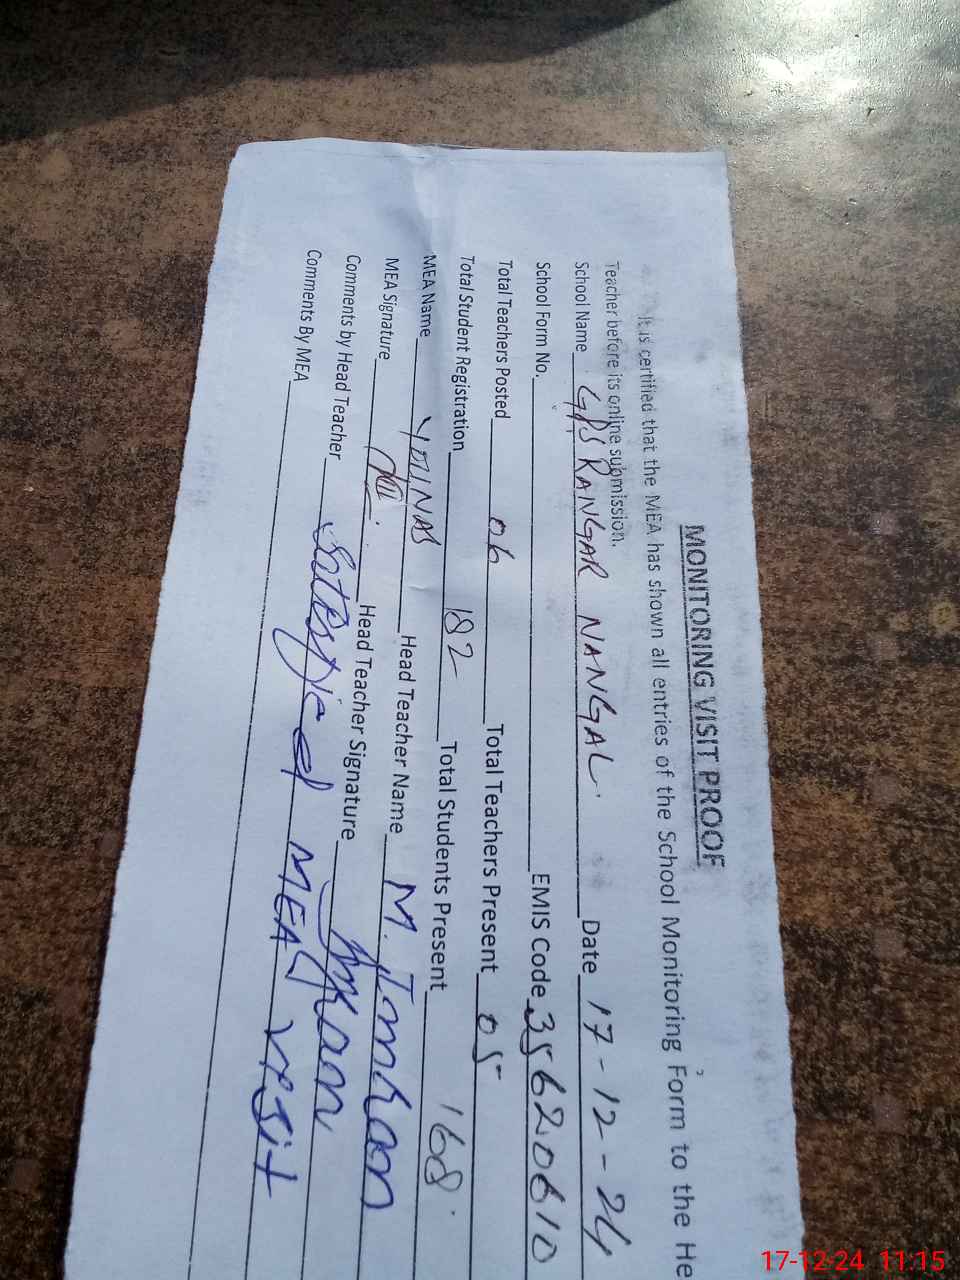 MONITORING VISIT PROOF
It is certified that the MEA has shown all entries of the School Monitoring Form to the He
Teacher before its online submission.
School Name GPS RANGAR NANGAL. Date 17-12-24
School Form No. EMIS Code 35620610
Total Teachers Posted 06 Total Teachers Present 05
Total Student Registration 182 Total Students Present 168.
MEA Name YOUNAS Head Teacher Name M. Imran
MEA Signature Head Teacher Signature Imran
Comments by Head Teacher Satesfied MEA visit
Comments By MEA
17-12-24 11:15